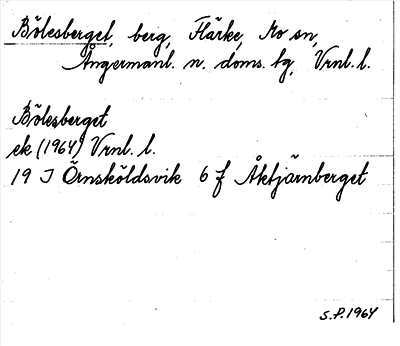 Bölesberget, berg, Flärke, Mo sn,
Ångermanl. n. doms. tg, Vrnl. l.
Bölesberget
ek (1964) Vrnl. l.
19 J Örnsköldsvik 6 f Åktjärnberget
S.P. 1964